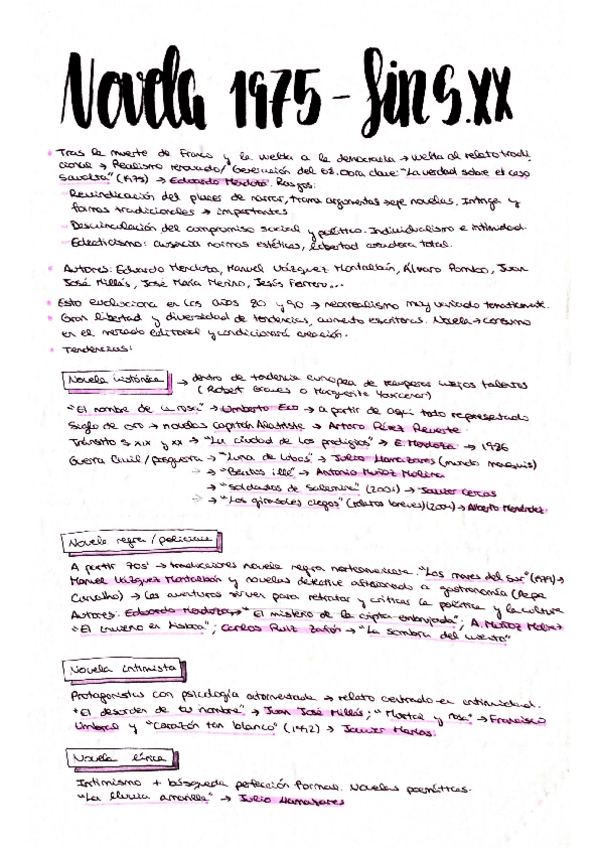 Novela 1975 - fin s.XX
Tras la muerte de Franco y la vuelta a la democracia → vuelta al relato tradi
cional → Realismo renovado/ Generación del 68. Obra clave: "La verdad sobre el caso
Savolta" (1975) → Eduardo Mendoza. Rasgos:
Reivindicación del placer de narrar, trama argumentos → eje novelas. Intriga y
formas tradicionales → importantes
Desvinculación del compromiso social y político. Individualismo e intimidad.
Eclecticismo: ausencia normas estéticas, libertad creadora total.
Autores: Eduardo Mendoza, Manuel Vázquez Montalbán, Álvaro Pombo, Juan
José Millás, José María Merino, Jesús Ferrero...
Esto evoluciona en los años 80 y 90 → neorrealismo muy variado temáticamente.
Gran libertad y diversidad de tendencias, aumento escritoras. Novela → consumo
en el mercado editorial y condicionará creación.
Tendencias:
Novela histórica → dentro de tendencia europea de recuperar viejos talentos
(Robert Graves o Marguerite Yourcenar)
"El nombre de la rosa" → Umberto Eco → a partir de aquí todo representado
Siglo de oro → novelas capitán Alatriste → Arturo Pérez Reverte.
Tránsito s xix y xx → "La ciudad de los prodigios" → E. Mendoza → 1986
Guerra Civil/posguerra → "Luna de lobos" → Julio Llamazares (mundo maquis)
→ "Beatus ille" → Antonio Muñoz Molina
→ "Soldados de Salamina" (2001) → Javier Cercas
→ "Los girasoles ciegos" (relatos breves)(2004) → Alberto Menéndez.
Novela negra / policiaca
A partir 70s' → traducciones novela negra norteamericana. "Los mares del Sur" (1979) →
Manuel Vázquez Montalbán y novelas detective aficionado a gastronomía (Pepe
Carvalho) → Las aventuras sirven para retratar y criticar la política y la cultura
Autores: Eduardo Mendoza → "El misterio de la cripta embrujada"; A. Muñoz Molina
"El invierno en Lisboa"; Carlos Ruiz Zafón → "La sombra del viento"
Novela intimista
Protagonistas con psicología atormentada → relato centrado en intimidad.
"El desorden de tu nombre" → Juan José Millás; "Mortal y rosa" → Francisco
Umbral y "Corazón tan blanco" (1992) → Javier Marías.
Novela lírica
Intimismo + búsqueda perfección formal. Novelas poemáticas.
"La lluvia amarilla" → Julio Llamazares